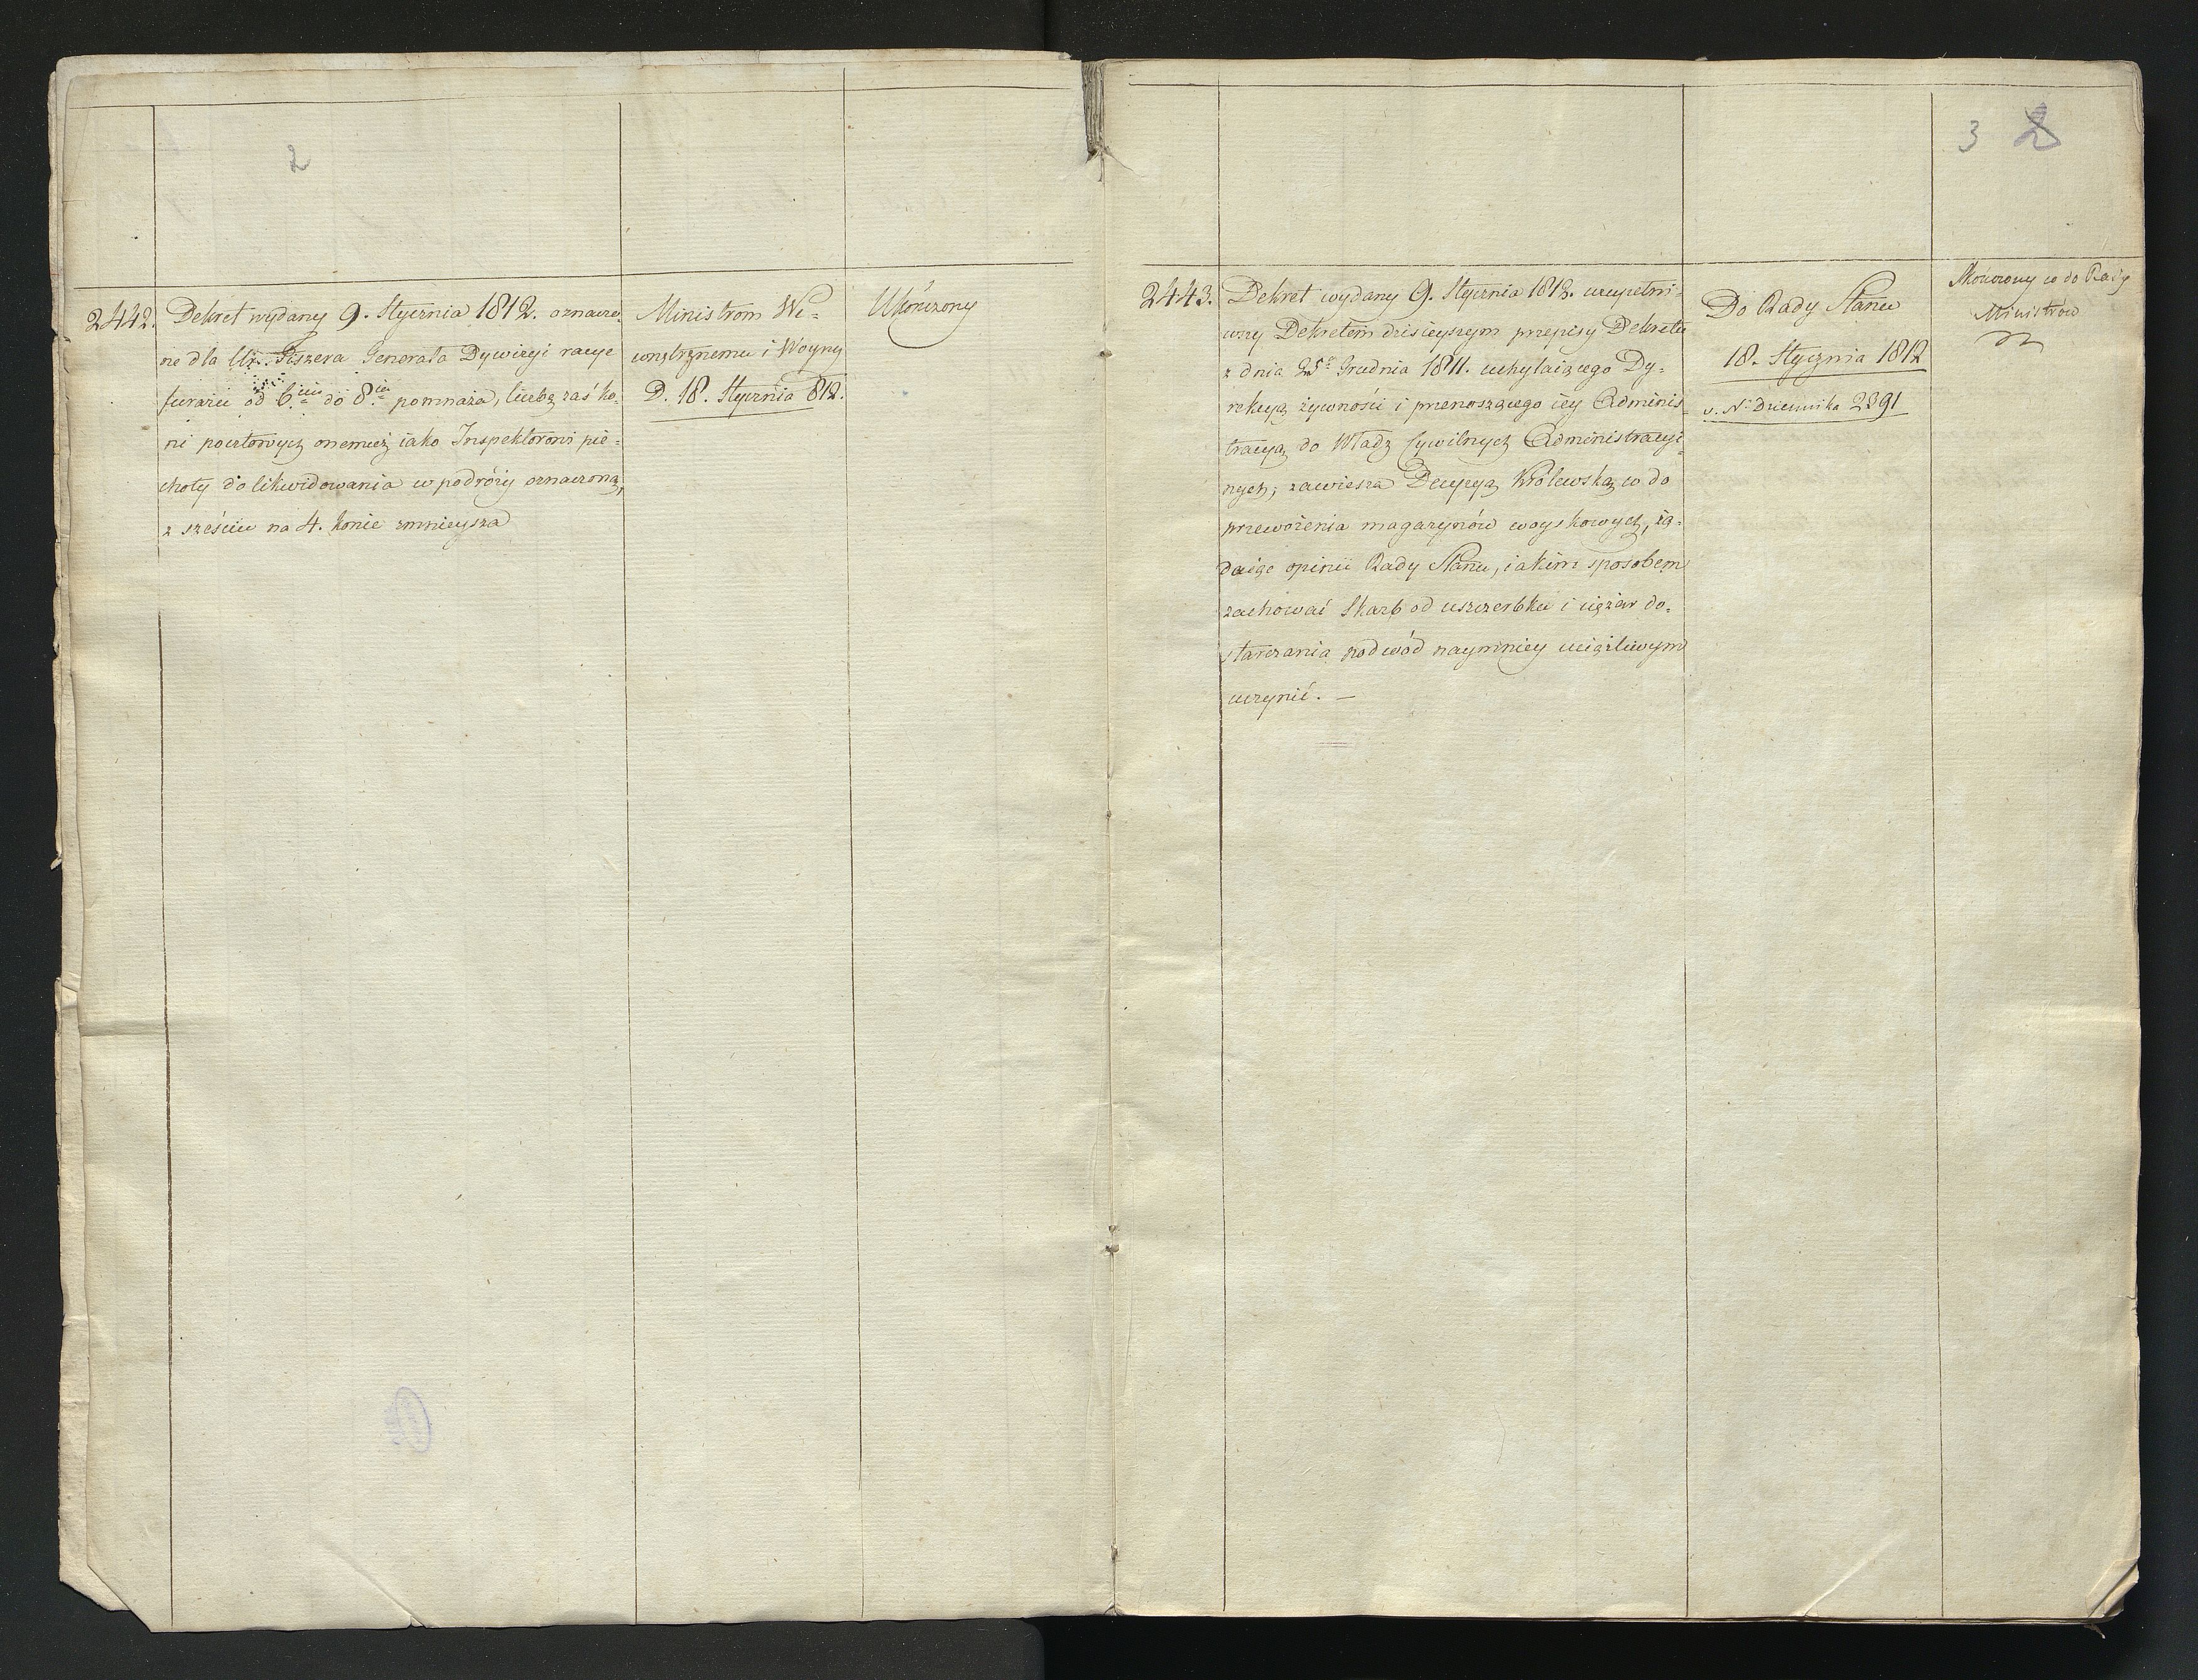 2
2442. Dekret wydany 9. Stycznia 1812. oznaczo-
ne dla Ur. Fiszera Generała Dywizyi racye
furażu od 6.ciu do 8.iu pomnaża, liczbę zaś ko-
ni pocztowych onemuż iako Inspektorowi pie-
choty do likwidowania w podróży oznaczoną,
z sześciu na 4. konie zmnieysza
Ministrom We-
wnętrznemu i Woyny
D. 18. Stycznia 812.
Ukończony
3 2
2443. Dekret wydany 9. Stycznia 1812. uzupełni-
wszy Dekretem dzisieyszym przepisy Dekretu
z dnia 25º Grudnia 1811. uchylaiącego Dy-
rekcyą żywności i przenoszącego iey Adminis-
tracyą do Władz Cywilnych Administracyi-
nych; zawiesza Decyzyą Królewską co do
przewożenia magazynów woyskowych, żą-
daiąc opinii Rady Stanu, iakim sposobem
zachować Skarb od uszczerbku i ciężar do-
starczania podwód naymniey uciążliwym
uczynić. —
Do Rady Stanu
18. Stycznia 1812
v. N. Dziennika 2391
Skończony co do Rady
Ministrów